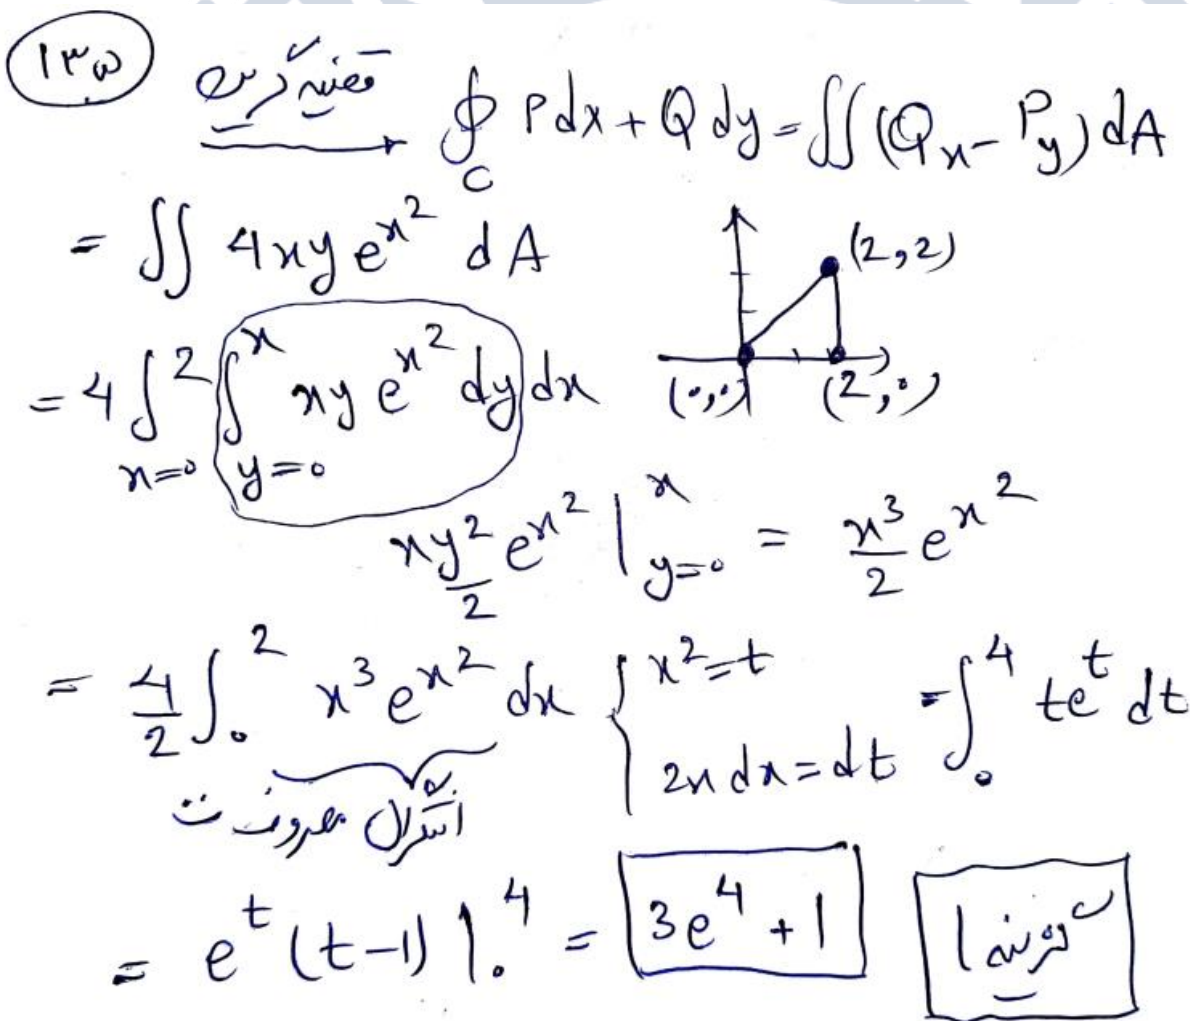 ۱۳۵ قضیه گرین ∮_C P dx + Q dy = ∬ (Q_x - P_y) dA
= ∬ 4xy e^{x^2} dA
(2,2)
(۰,۰) (2,۰)
= 4 ∫_{x=۰}^{2} ∫_{y=۰}^{x} xy e^{x^2} dy dx
\frac{xy^2}{2} e^{x^2} |_{y=۰}^{x} = \frac{x^3}{2} e^{x^2}
= \frac{4}{2} ∫_۰^2 x^3 e^{x^2} dx { x^2 = t
2x dx = dt = ∫_۰^4 t e^t dt
انتگرال معروف ت
= e^t (t-1) |_۰^4 = 3e^4 + 1 گزینه ۱